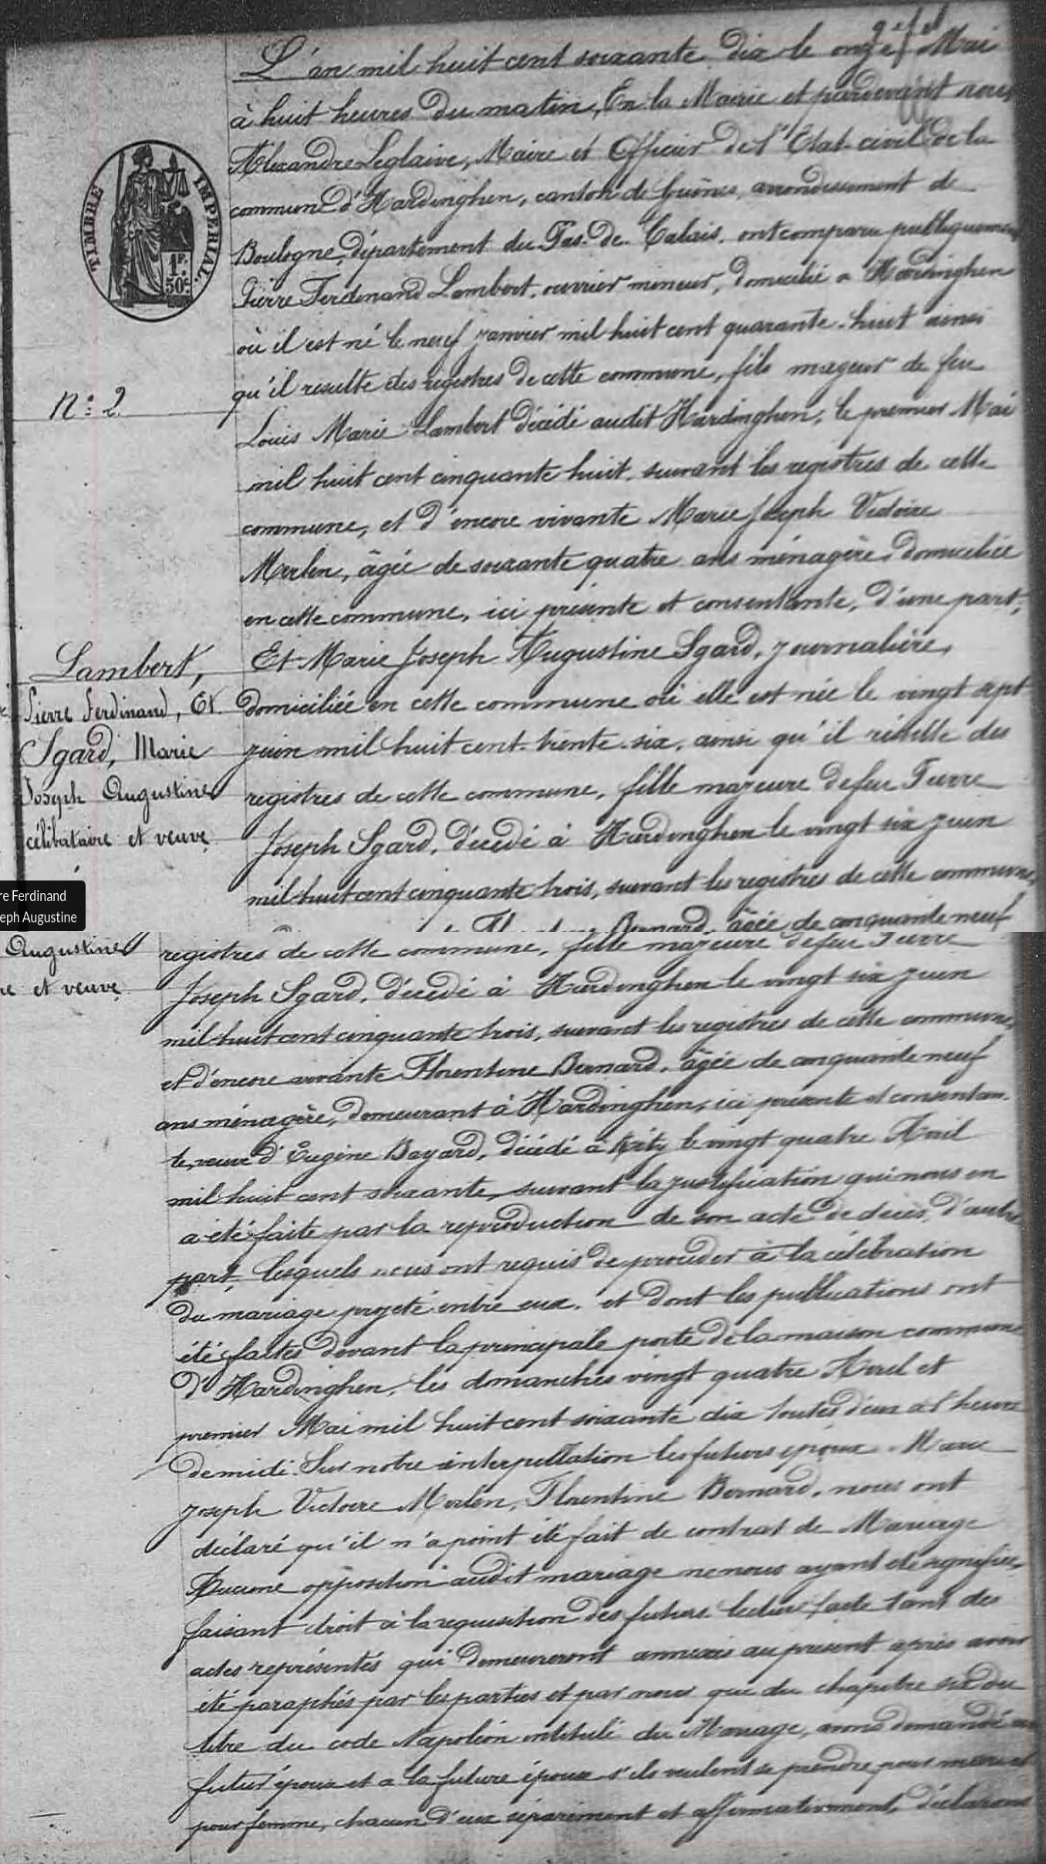 L'an mil huit cent soixante dix le onze Mai
à huit heures du matin, En la Mairie et pardevant nous
Alexandre Leglaive, Maire et Officier de l'Etat civil de la
commune d'Hardinghen, canton de Guînes, arrondissement de
Boulogne, département du Pas-de-Calais, ont comparu publiquement
Pierre Ferdinand Lambert, ouvrier mineur, domicilié à Hardinghen
où il est né le neuf janvier mil huit cent quarante-huit ainsi
qu'il resulte des registres de cette commune, fils majeur de feu
Louis Marie Lambert décédé audit Hardinghen, le premier Mai
mil huit cent cinquante huit, suivant les registres de cette
commune, et d'encore vivante Marie Joseph Victoire
Merlen, âgée de soixante quatre ans ménagère, domiciliée
en cette commune, ici présente et consentante, d'une part,
Et Marie Joseph Augustine Sgard, journalière,
domiciliée en cette commune où elle est née le vingt sept
juin mil huit cent trente-six, ainsi qu'il résulte des
registres de cette commune, fille majeure de feu Pierre
Joseph Sgard, décédé à Hardinghen le vingt six juin
mil huit cent cinquante trois, suivant les registres de cette commune,
Bernard, âgée de cinquante neuf
TIMBRE IMPERIAL
1F.
50c.
N° 2
Lambert,
Pierre Ferdinand, Et
Sgard, Marie
Joseph Augustine
célibataire et veuve
re Ferdinand
eph Augustine
Augustine
et veuve
registres de cette commune, fille majeure de feu Pierre
Joseph Sgard, décédé à Hardinghen le vingt six juin
mil huit cent cinquante trois, suivant les registres de cette commune,
et d'encore vivante Florentine Bernard, âgée de cinquante neuf
ans ménagère, demeurant à Hardinghen, ici présente et consentan-
te, veuve d'Eugène Bayard, décédé à le vingt quatre Avril
mil huit cent soixante, suivant la justification qui nous en
a été faite par la reproduction de son acte de décès, d'autre
part, lesquels nous ont requis de procéder à la célébration
du mariage projeté entre eux, et dont les publications ont
été faites devant la principale porte de la maison commune
d'Hardinghen, les dimanches vingt quatre Avril et
premier Mai mil huit cent soixante dix toutes deux à l'heure
de midi. Sur notre interpellation les futurs époux Marie
Joseph Victoire Merlen, Florentine Bernard, nous ont
déclaré qu'il n'a point été fait de contrat de Mariage
Aucune opposition audit mariage ne nous ayant été signifiée,
faisant droit à la requisition des futurs, lecture faite tant des
actes représentés qui demeureront annexés au présent après avoir
été paraphés par les parties et par nous que du chapitre six du
titre du code Napoléon intitulé du Mariage, avons demandé au
futur époux et à la future épouse s'ils veulent se prendre pour mari et
pour femme, chacun d'eux séparément et affirmativement, déclarons